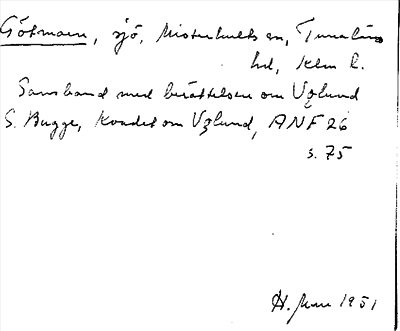 Götmaren, sjö, Misterhults sn, Tunaläns
hd, Klm l.
Samband med berättelsen om Vǫlund
S. Bugge, Kvadet om Vǫlund, ANF 26
s. 75
H. 1951